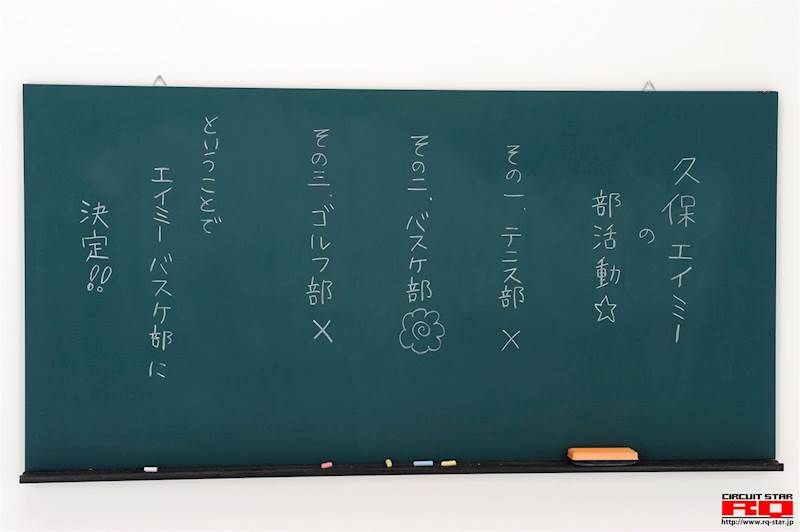 久保エイミー
の
部活動☆
その一、テニス部 ×
その二、バスケ部
その三、ゴルフ部 ×
ということで
エイミーバスケ部に
決定!!
CIRCUIT STAR
RQ
http://www.rq-star.jp